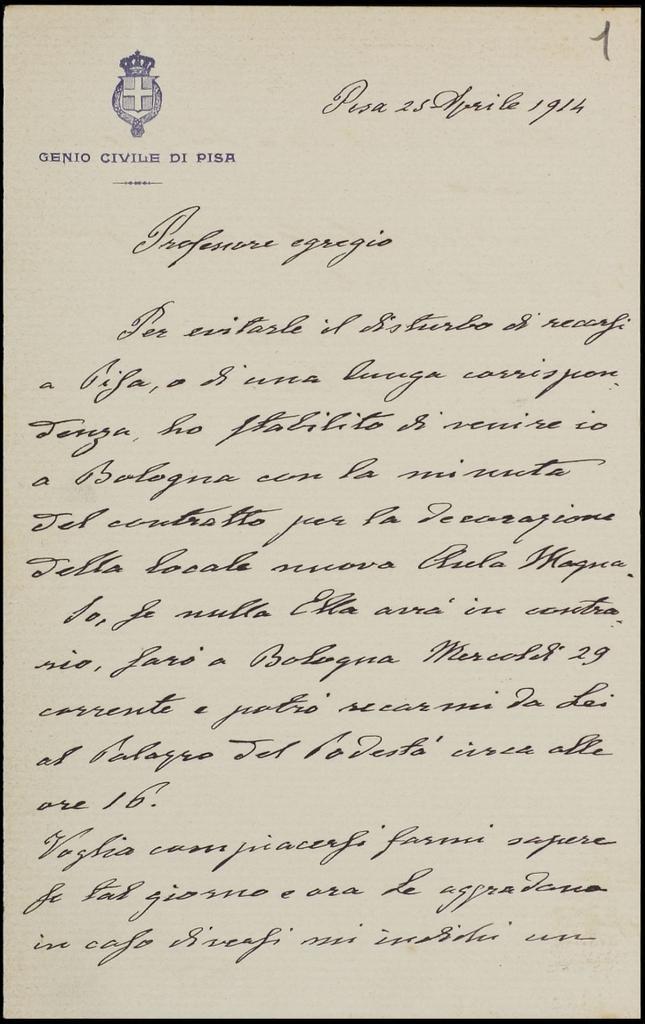 1
Pisa 25 Aprile 1914
GENIO CIVILE DI PISA
Professore egregio
Per evitarle il disturbo di recarsi
a Pisa, o di una lunga corrispon-
denza, ho stabilito di venire io
a Bologna con la minuta
del contratto per la decorazione
della locale nuova Aula Magna.
Io, se nulla Ella avrà in contra-
rio, sarò a Bologna Mercoldì 29
corrente e potrò recarmi da Lei
al Palazzo del Podestà circa alle
ore 16.
Voglia compiacersi farmi sapere
se tal giorno e ora Le aggradano
in caso diverso mi indichi un